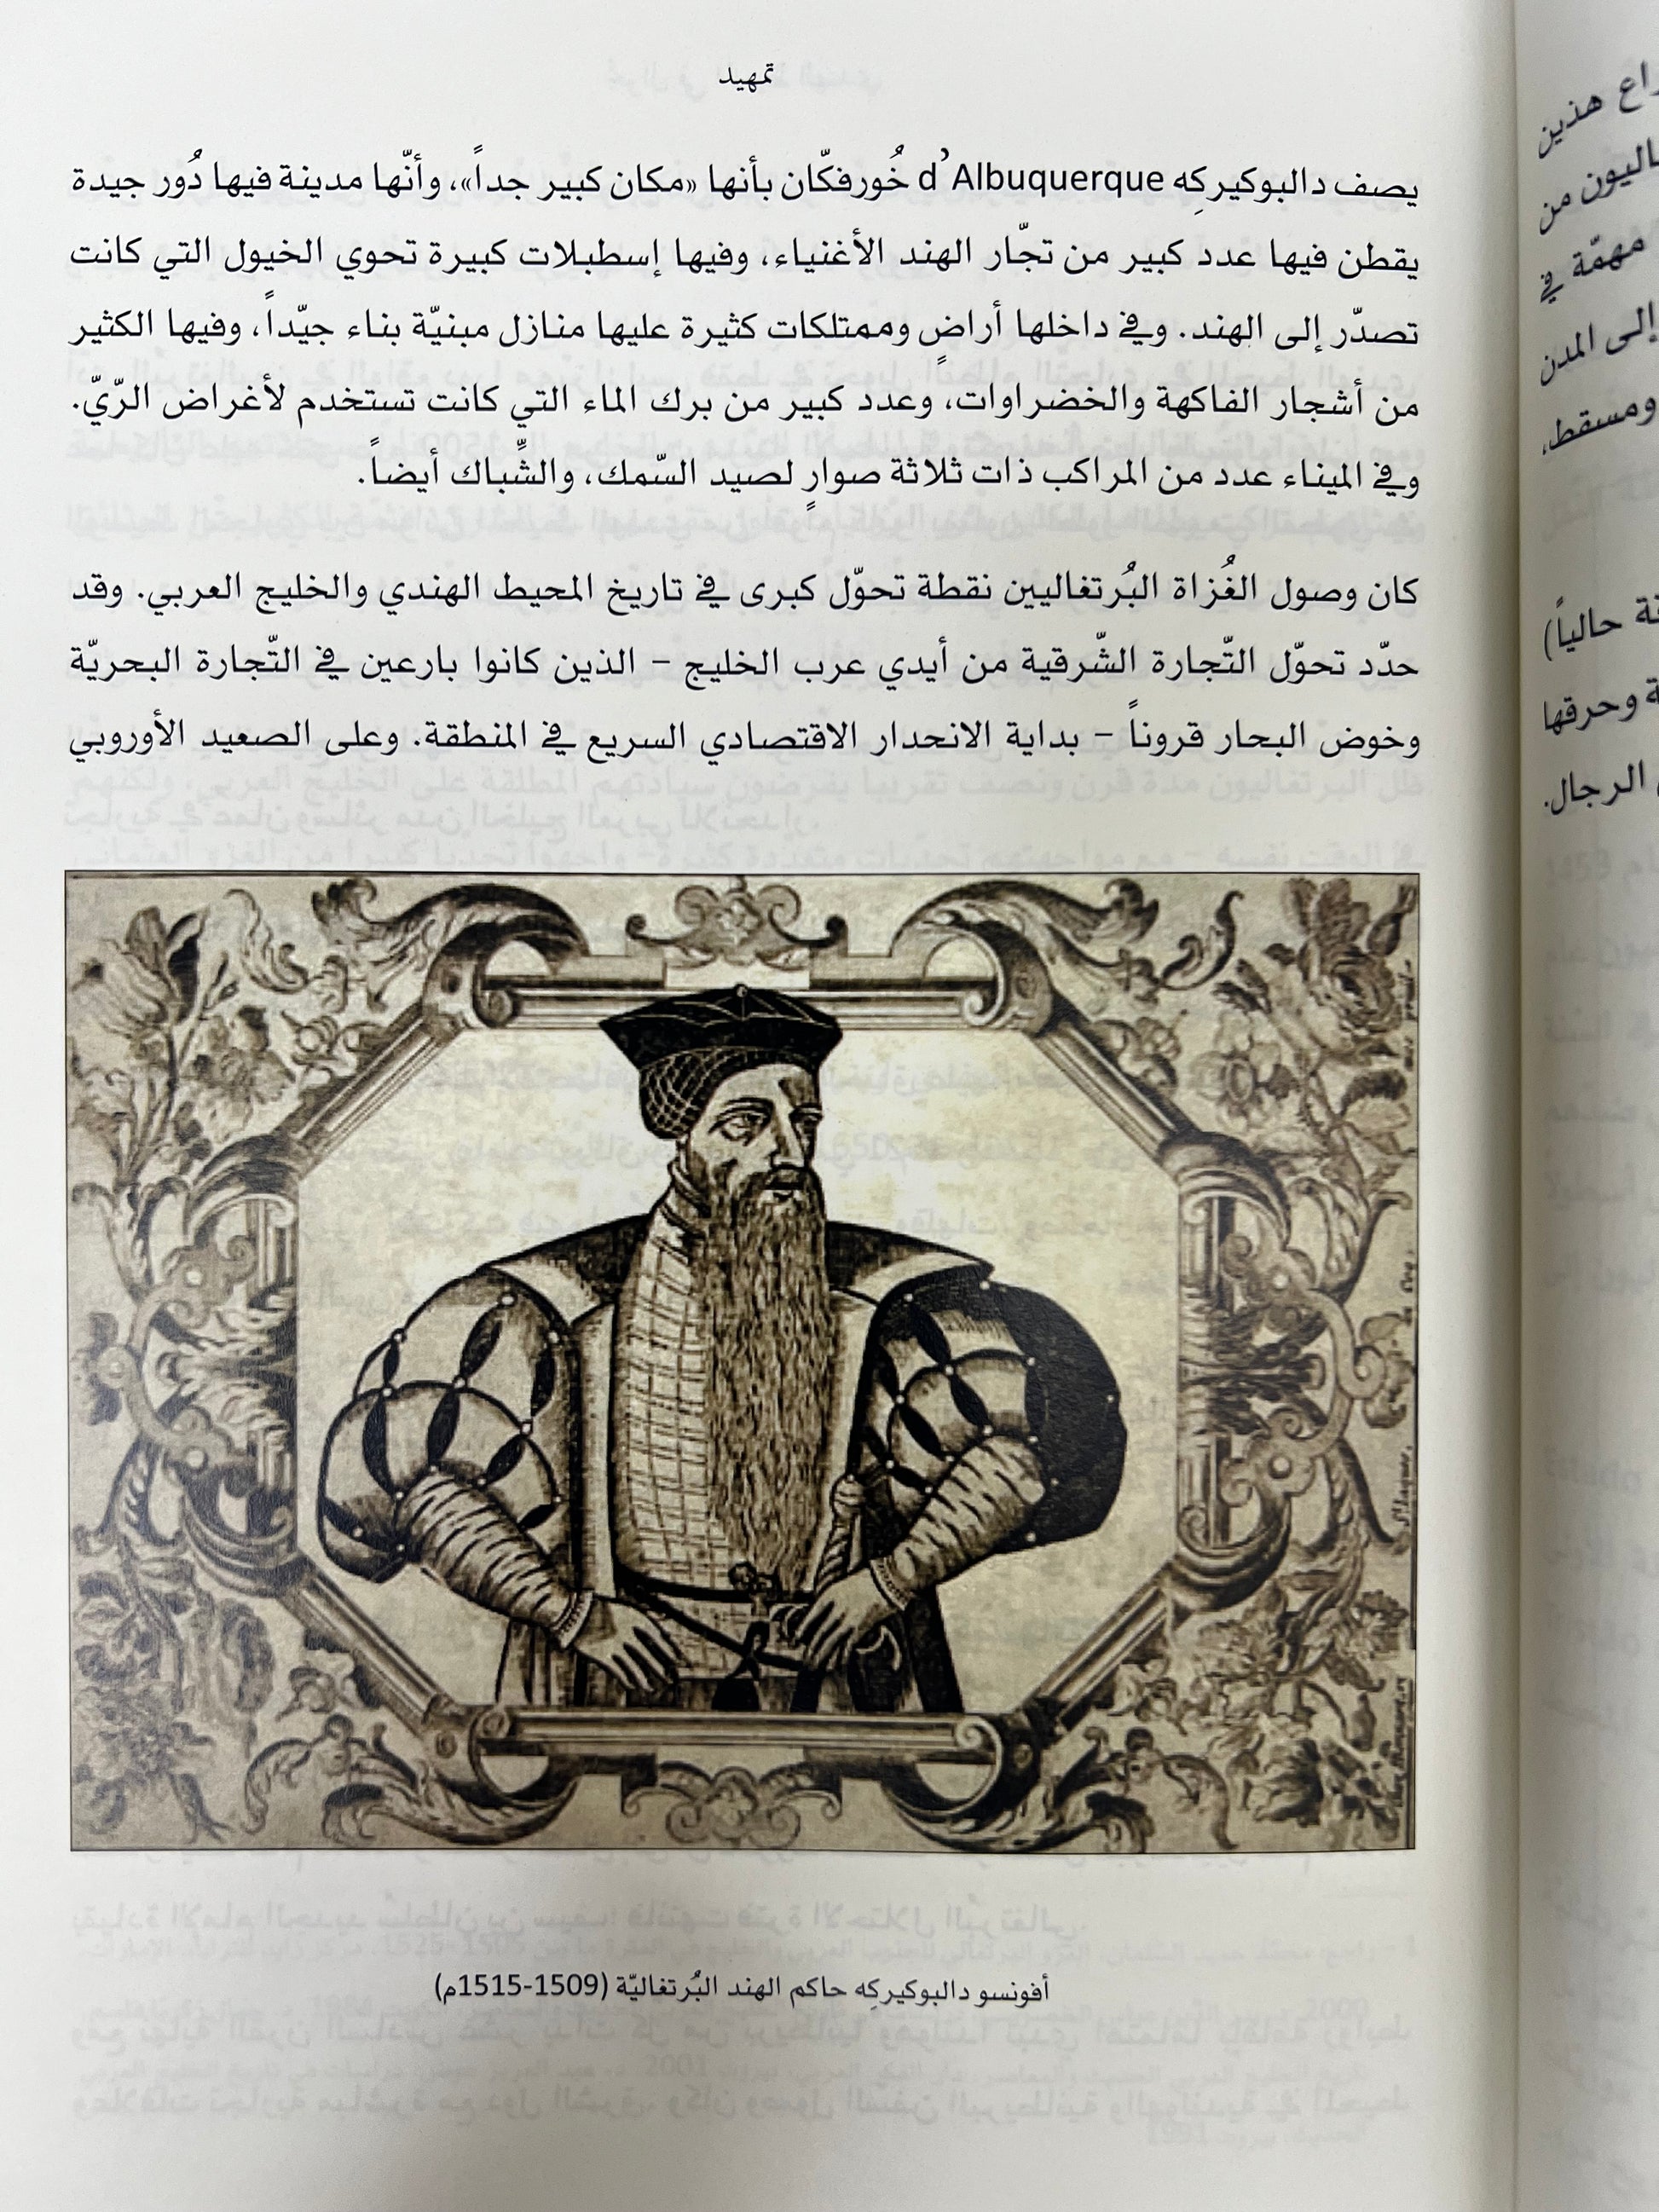 تمهيد
يصف دالبوكيركِه d’Albuquerque خُورفكّان بأنها «مكان كبير جداً»، وأنّها مدينة فيها دُور جيدة
يقطن فيها عدد كبير من تجّار الهند الأغنياء، وفيها إسطبلات كبيرة تحوي الخيول التي كانت
تصدّر إلى الهند. وفي داخلها أراضٍ وممتلكات كثيرة عليها منازل مبنيّة بناء جيّداً، وفيها الكثير
من أشجار الفاكهة والخضراوات، وعدد كبير من برك الماء التي كانت تستخدم لأغراض الرّيّ.
وفي الميناء عدد من المراكب ذات ثلاثة صوارٍ لصيد السّمك، والشِّباك أيضاً.
كان وصول الغُزاة البُرتغاليين نقطة تحوّل كبرى في تاريخ المحيط الهندي والخليج العربي. وقد
حدّد تحوّل التّجارة الشّرقية من أيدي عرب الخليج – الذين كانوا بارعين في التّجارة البحريّة
وخوض البحار قروناً – بداية الانحدار الاقتصادي السريع في المنطقة. وعلى الصعيد الأوروبي
أفونسو دالبوكيركِه حاكم الهند البُرتغاليّة (1509-1515م)
هذين
من
مهمّة في
إلى المدن
ومسقط،
حالياً)
وحرقها
الرجال.